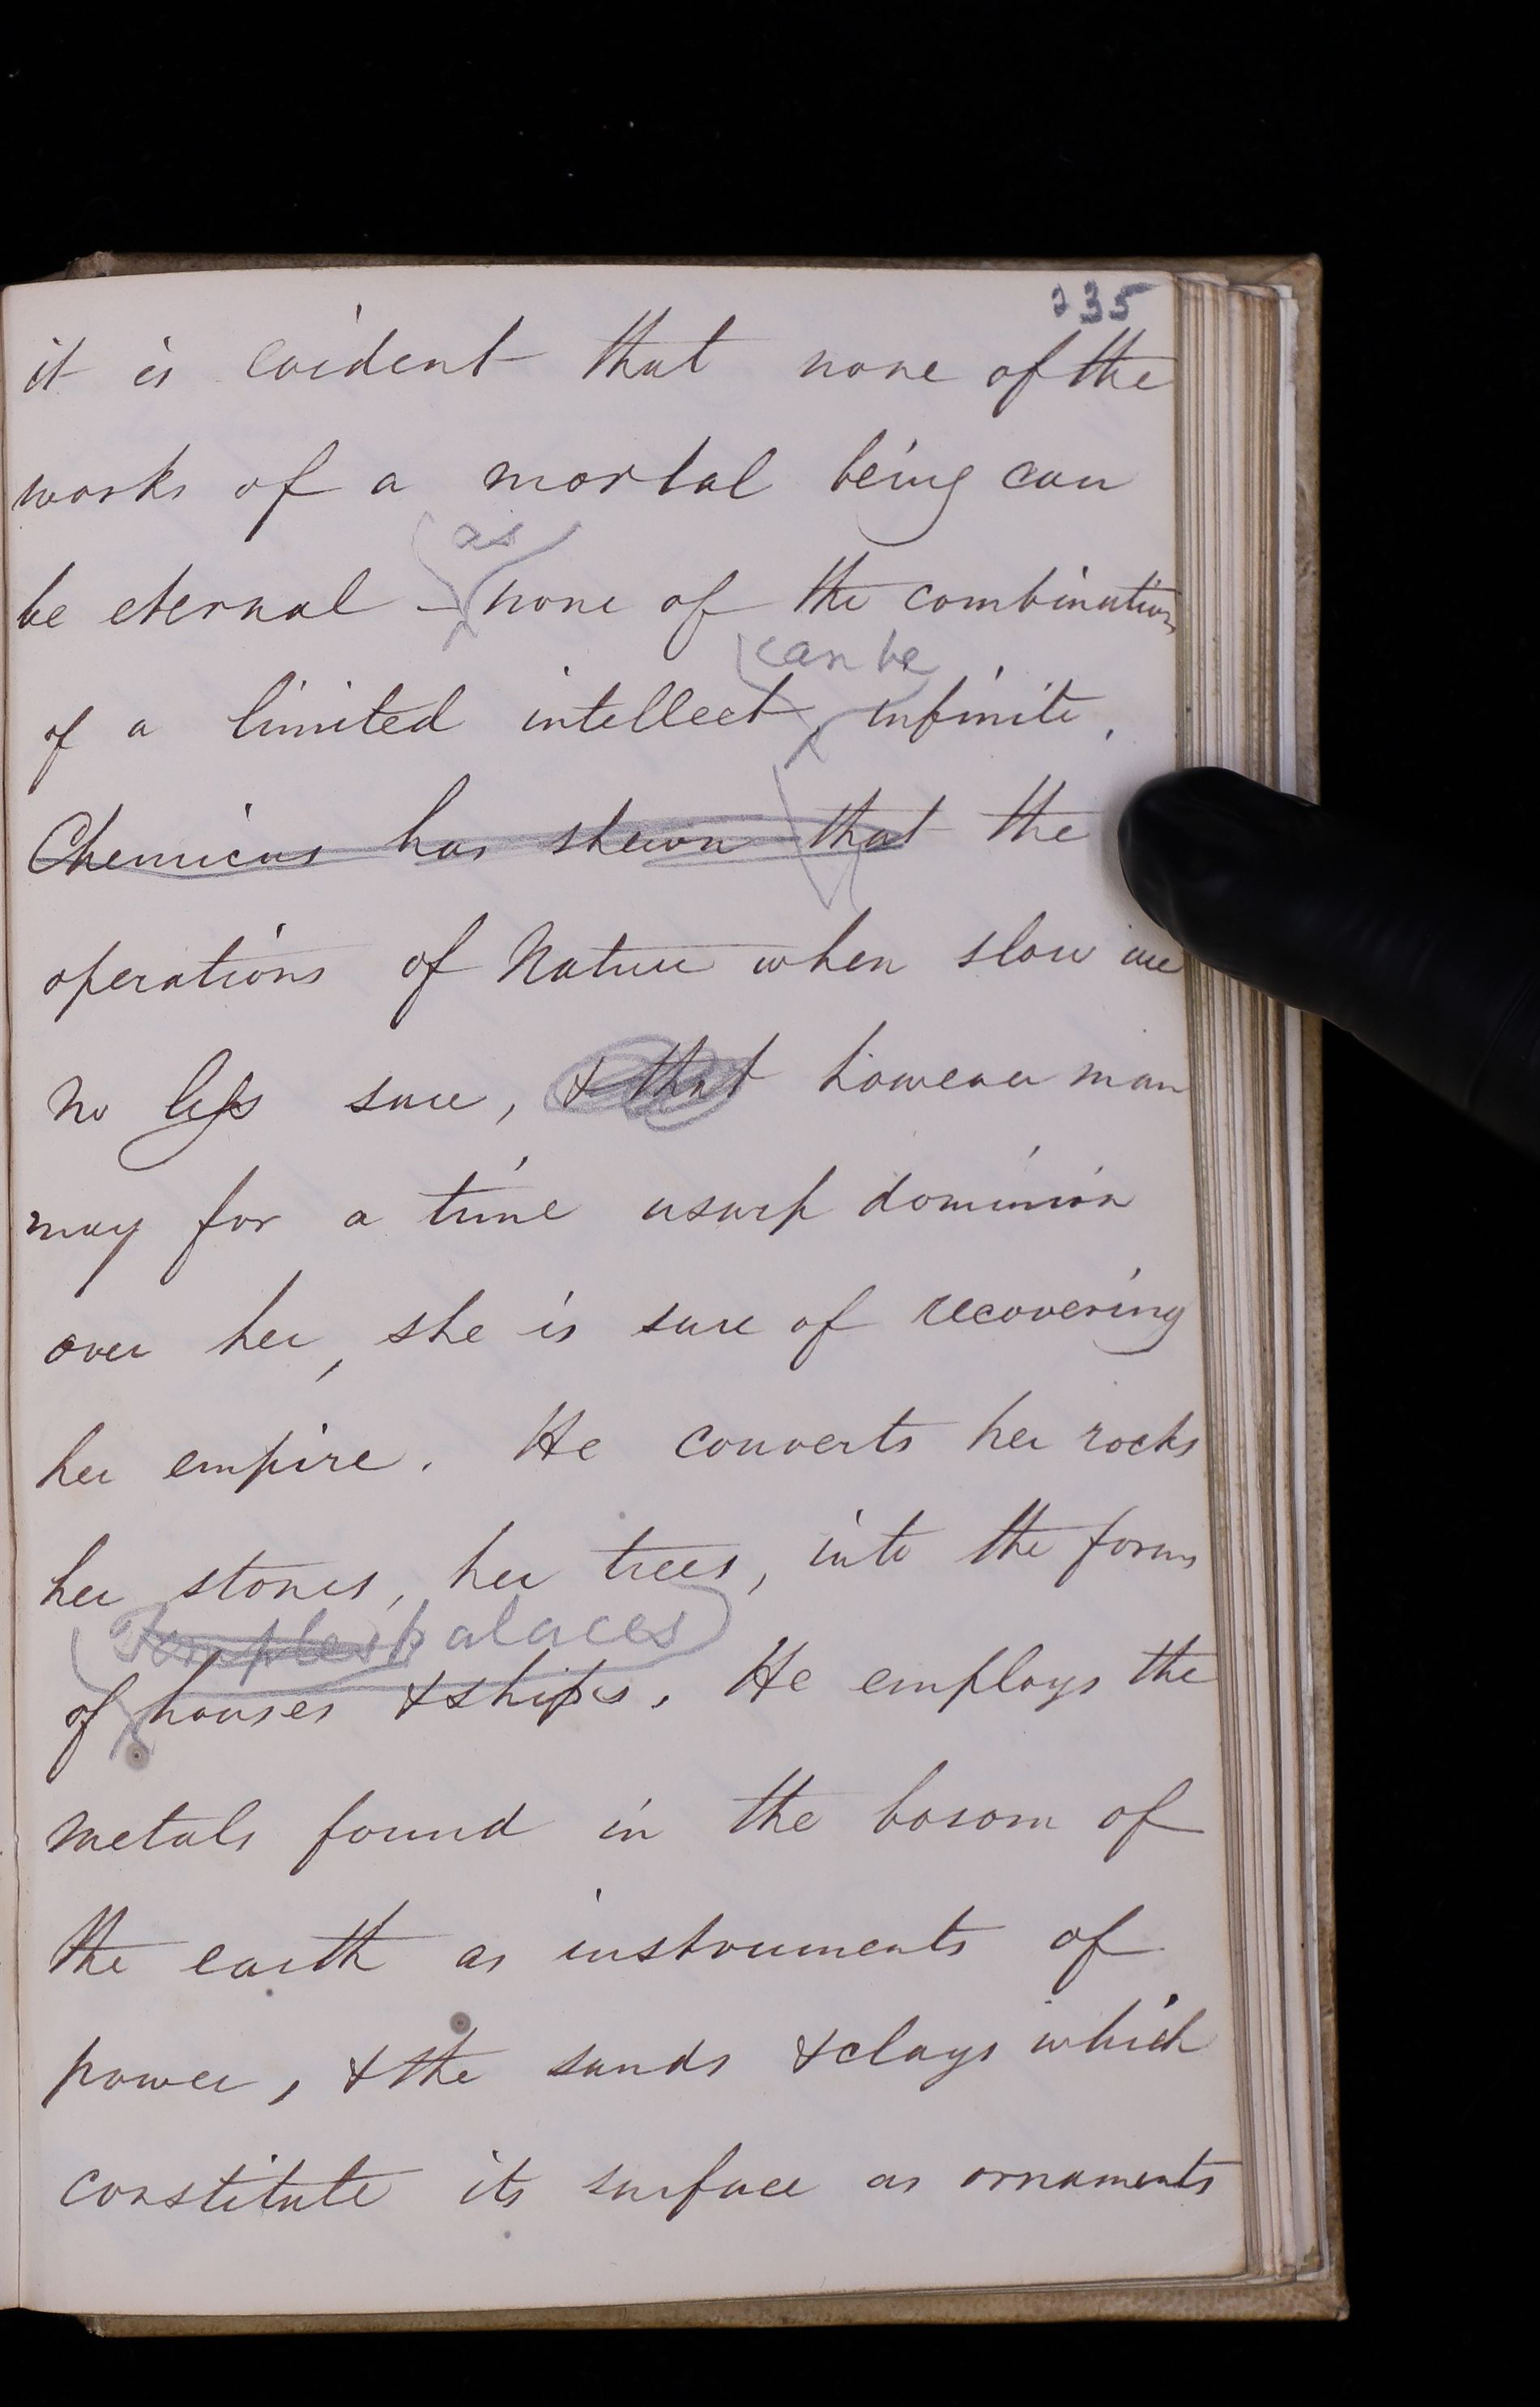 235
it is evident that none of the
works of a mortal being can
as
be eternal - none of the combinations
can be
of a limited intellect, infinite.
Chemicus has shewn that the
operations of Nature when slow are
no less sure, & that however man
may for a time usurp dominion
over her, she is sure of recovering
her empire. He converts her rocks
her stones, her trees, into the forms
Temples palaces
of houses & ships. He employs the
metals found in the bosom of
the earth as instruments of
power, & the sands & clays which
constitute its surface as ornaments